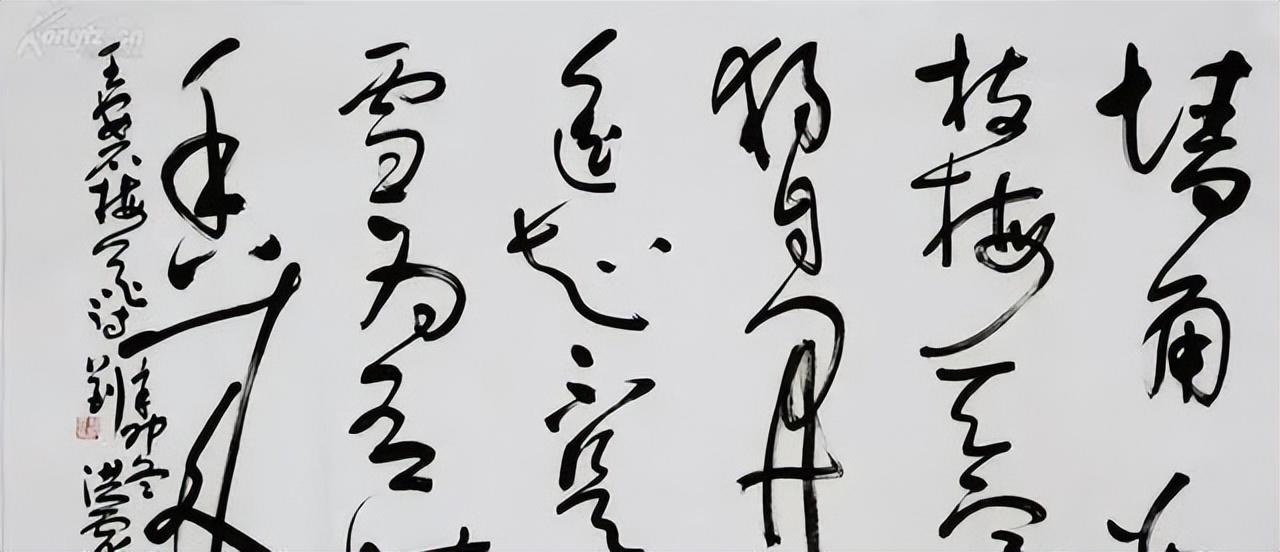 Kongfz.cn
墙角
枝梅凌寒
独自开
遥知不是
雪为有
香来
王安石梅花诗
辛卯冬